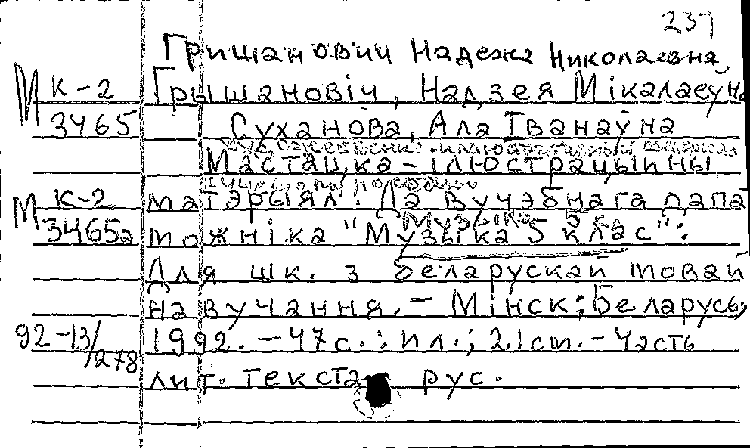 237
Гришанович Надежа Николаевна
М К-2 Грышановіч, Надзея Мікалаеўна
3465 Суханова, Ала Іванаўна
Мастацка-ілюстрацыйны
М К-2 матэрыял: Да вучэбнага дапа
3465а можніка "Музыка 5 клас":
Для шк. з беларускай мовай
навучання. - Мінск: Беларусь,
92-13/278 1992. - 47 с.: ил.; 21 см. - Часть
лит. текста рус.